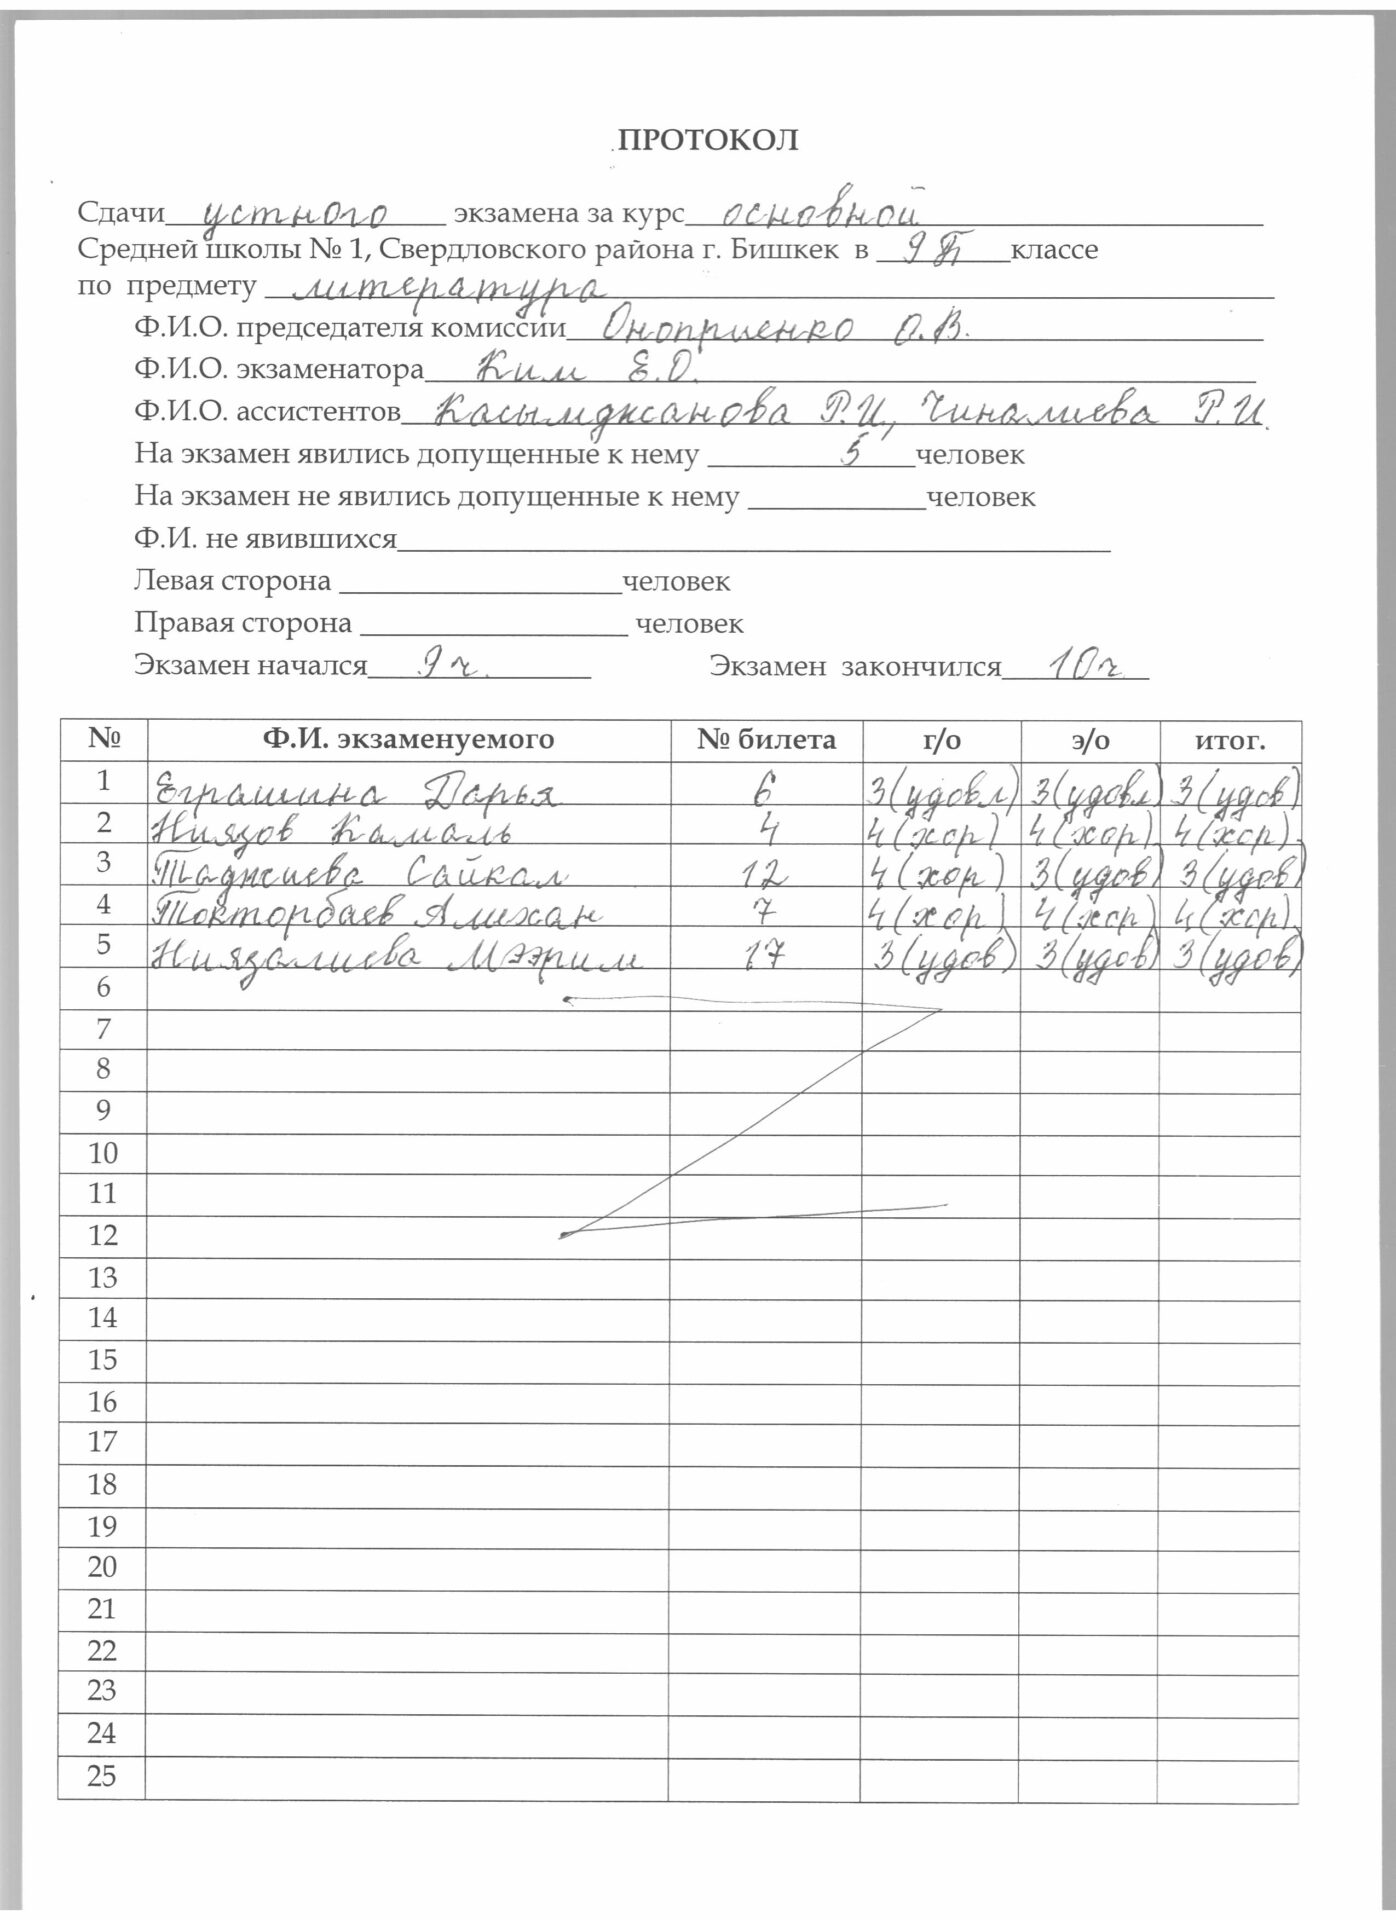 ПРОТОКОЛ
Сдачи устного экзамена за курс основной
Средней школы № 1, Свердловского района г. Бишкек в 9 Б классе
по предмету литература
Ф.И.О. председателя комиссии Оноприенко О.В.
Ф.И.О. экзаменатора Ким Е.О.
Ф.И.О. ассистентов Касымджанова Р.И., Чиналиева Р.И.
На экзамен явились допущенные к нему 5 человек
На экзамен не явились допущенные к нему человек
Ф.И. не явившихся
Левая сторона человек
Правая сторона человек
Экзамен начался 9 ч. Экзамен закончился 10 ч.
№ Ф.И. экзаменуемого № билета г/о э/о итог.
1 Еграшина Дарья 6 3(удовл) 3(удовл) 3(удов)
2 Ниязов Камаль 4 4(хор) 4(хор) 4(хор).
3 Таджиева Сайкал 12 4(хор) 3(удов) 3(удов)
4 Токторбаев Алихан 7 4(хор) 4(хор) 4(хор).
5 Ниязалиева Мээрим 17 3(удов) 3(удов) 3(удов)
6
7
8
9
10
11
12
13
14
15
16
17
18
19
20
21
22
23
24
25